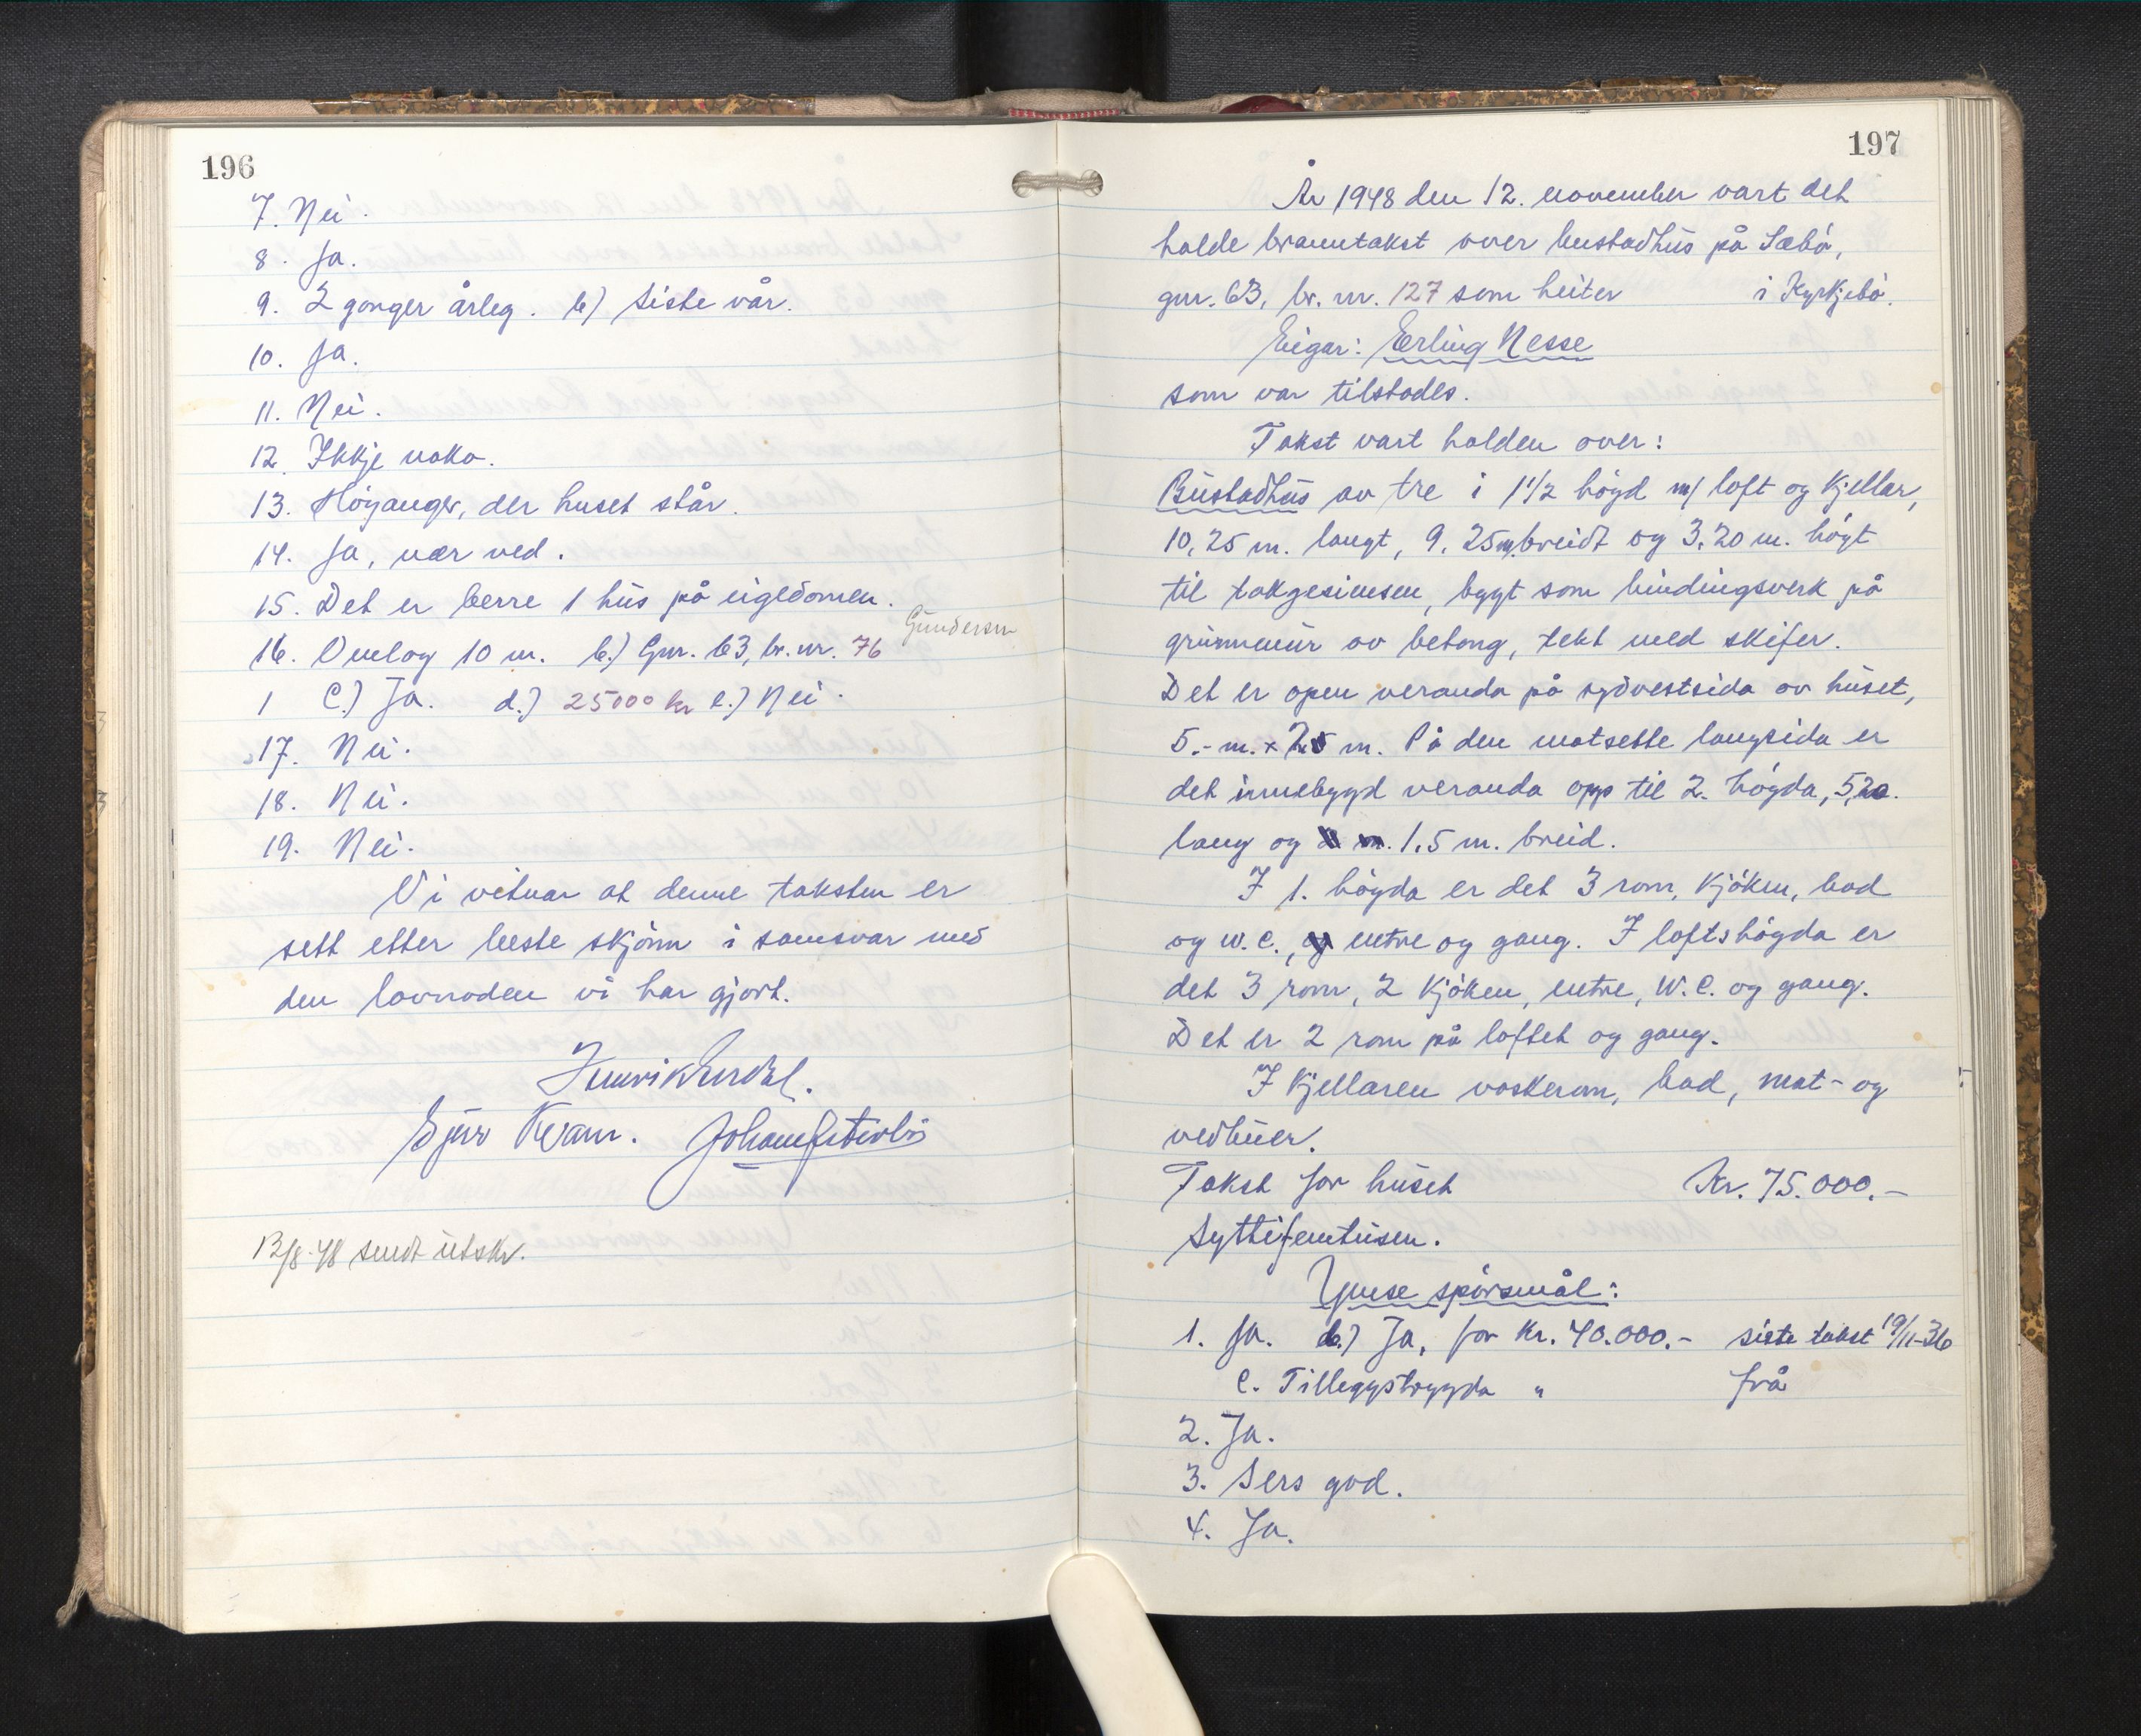 196
7. Nei.
8. Ja.
9. 2 gonger årleg. b) Siste vår.
10. Ja.
11. Nei.
12. Ikkje noko.
13. Höyanger, der huset står.
14. Ja, nær ved.
15. Det er berre 1 hus på eigedomen.
Gundersen
16. Omlag 10 m. b.) Gnr. 63, br. nr. 76
1 C.) Ja. d.) 25000 kr e.) Nei.
17. Nei.
18. Nei.
19. Nei.
Vi vitnar at denne taksten er
sett etter beste skjönn i samsvar med
den lovnaden vi har gjort.
Kvam.
12/8-48 sendt utskr.
197
År 1948 den 12. november vart det
halde branntakst over bustadhus på Sæbö,
gnr. 63, br. nr. 127 som heiter i Kyrkjebö.
Eigar: Erling Nesse
som var tilstades.
Takst vart halden over:
Bustadhus av tre i 1 1/2 högd m/ loft og kjellar,
10,25 m. langt, 9,25 m. breidt og 3,20 m. högt
til takgesimsen, bygt som bindingsverk på
grunnmur av betong, tekt med skifer.
Det er open veranda på sydvestsida av huset,
5.- m. x 2.5 m. På den motsette langsida er
det innebygd veranda opp til 2. högda, 5,20.
lang og 1.5 m. breid.
I 1. högda er det 3 rom, kjöken, bad
og w.c., entre og gang. I loftshögda er
det 3 rom, 2 kjöken, entre, W.C. og gang.
Det er 2 rom på loftet og gang.
I kjellaren vaskerom, bad, mat- og
vedbuer.
Takst for huset Kr. 75.000.-
Syttifemtusen.
Ymse spörsmål:
1. Ja. b.) Ja, for Kr. 40.000.- siste takst 19/11-36
c. Tilleggstrygda " frå
2. Ja.
3. Sers god.
4. Ja.